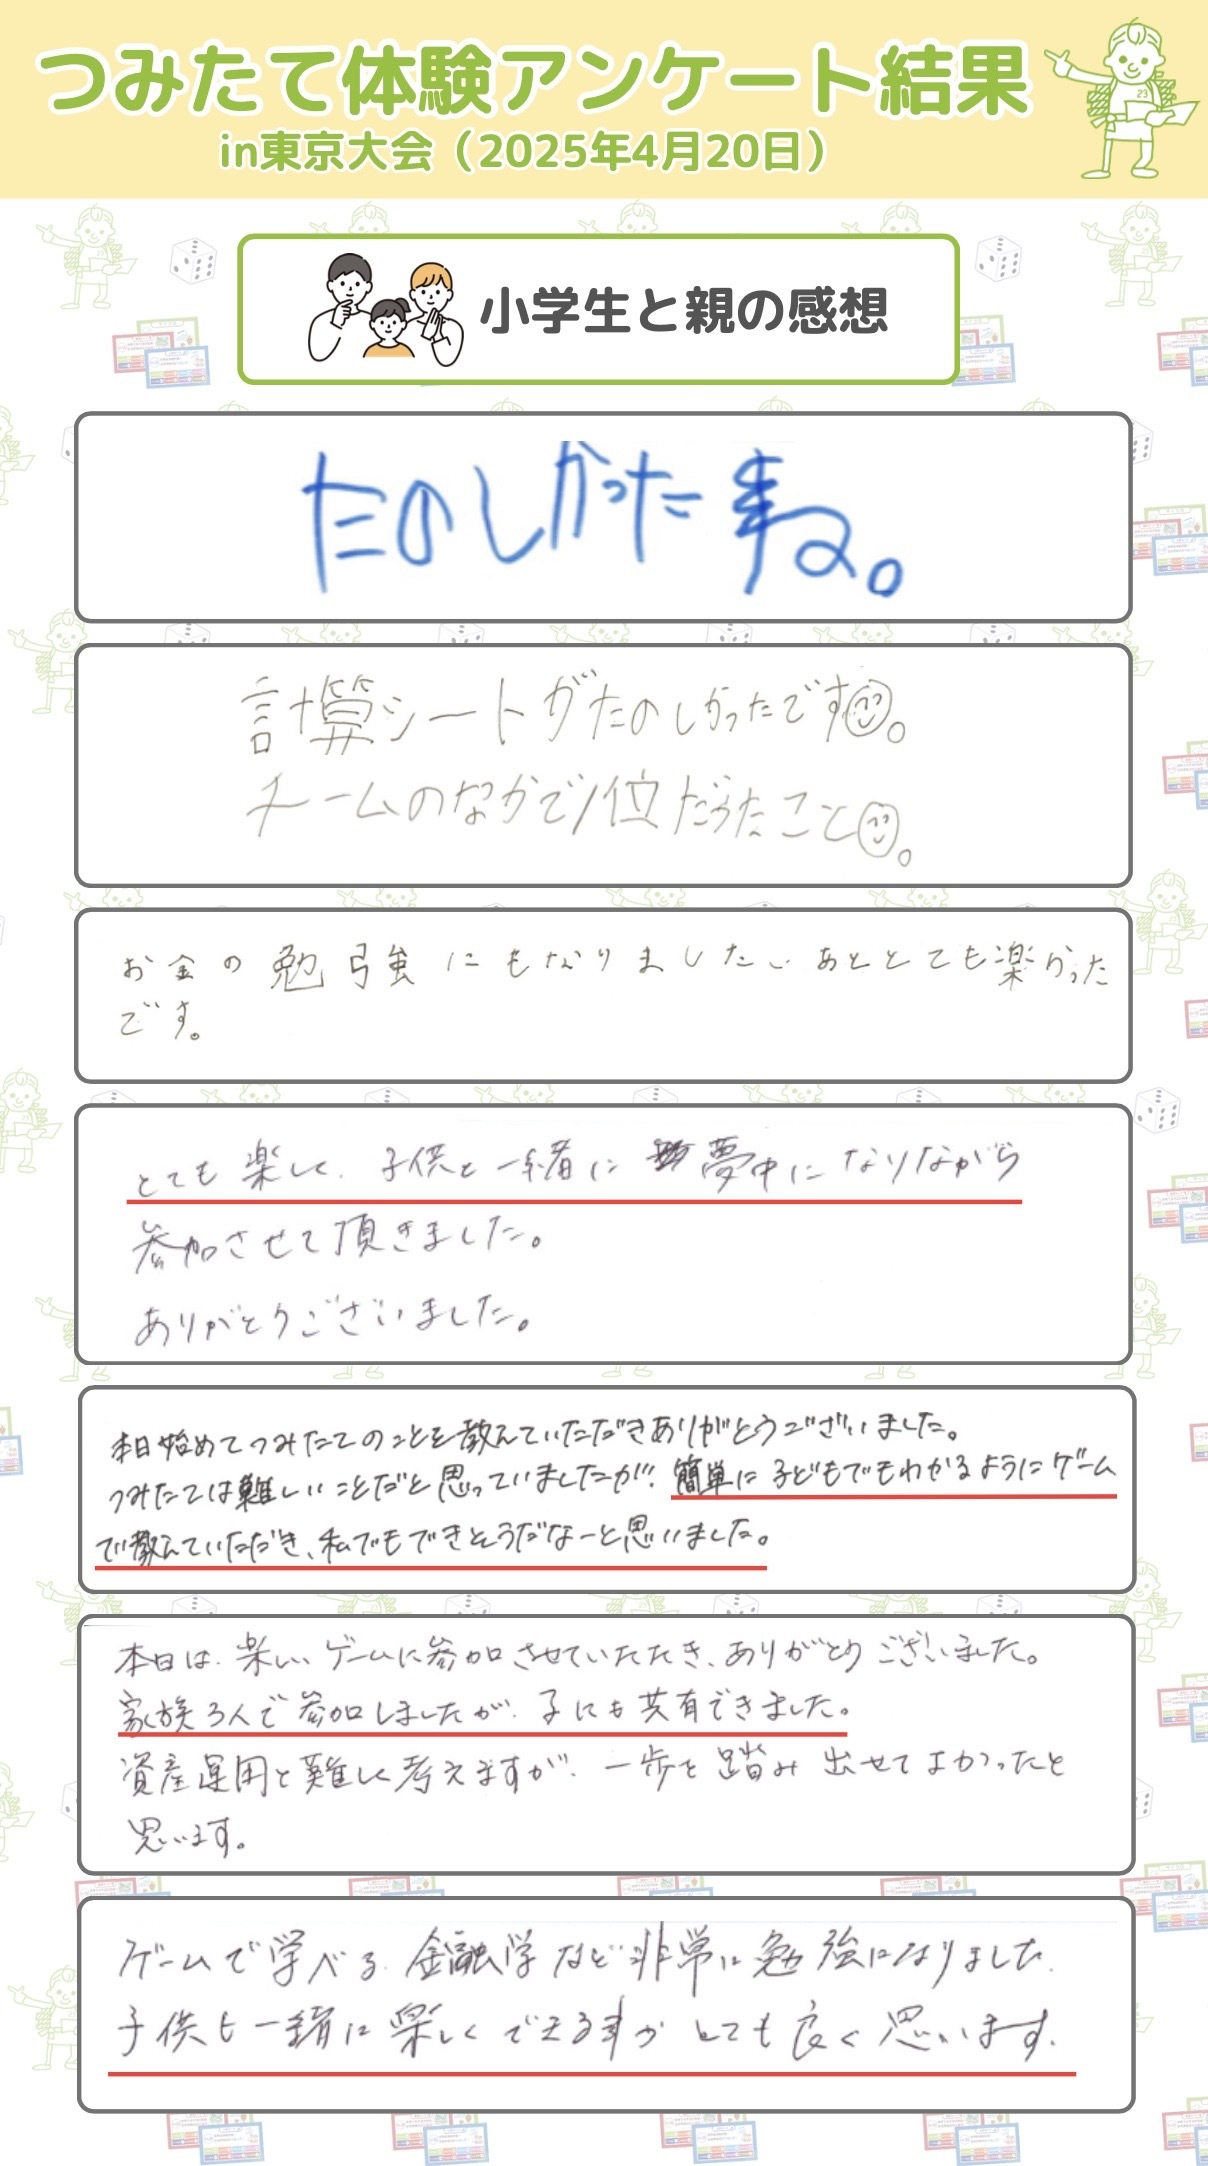 つみたて体験アンケート結果
in東京大会（2025年4月20日）
23
小学生と親の感想
たのしかった事ね。
計算シートがたのしかったです。
チームのなかで1位だったこと。
お金の勉強にもなりましたしあととても楽かった
です。
とても楽しく、子供と一緒に夢中になりながら
参加させて頂きました。
ありがとうございました。
本日始めてつみたてのことを教えていただきありがとうございました。
つみたては難しいことだと思っていましたが、簡単に子どもでもわかるようにゲーム
で教えていただき、私でもできそうだなーと思いました。
本日は、楽しいゲームに参加させていただき、ありがとうございました。
家族3人で参加しましたが、子にも共有できました。
資産運用と難しく考えますが、一歩を踏み出せてよかったと
思います。
ゲームで学べる、金融学など非常に勉強になりました。
子供も一緒に楽しくできる事がとても良く思います。